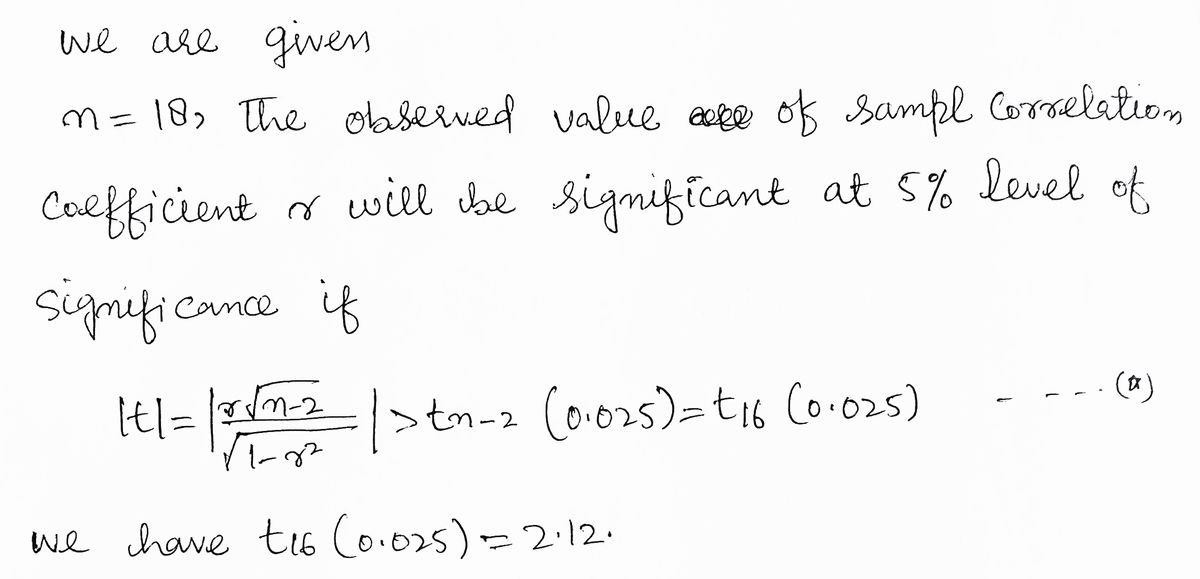 we are given
n = 18, The observed value of sampl Correlation
Coefficient r will be significant at 5% level of
significance if
|t| = |r√n-2 / √1-r²| > tn-2 (0.025) = t16 (0.025) - - - - . (*)
we have t16 (0.025) = 2.12.